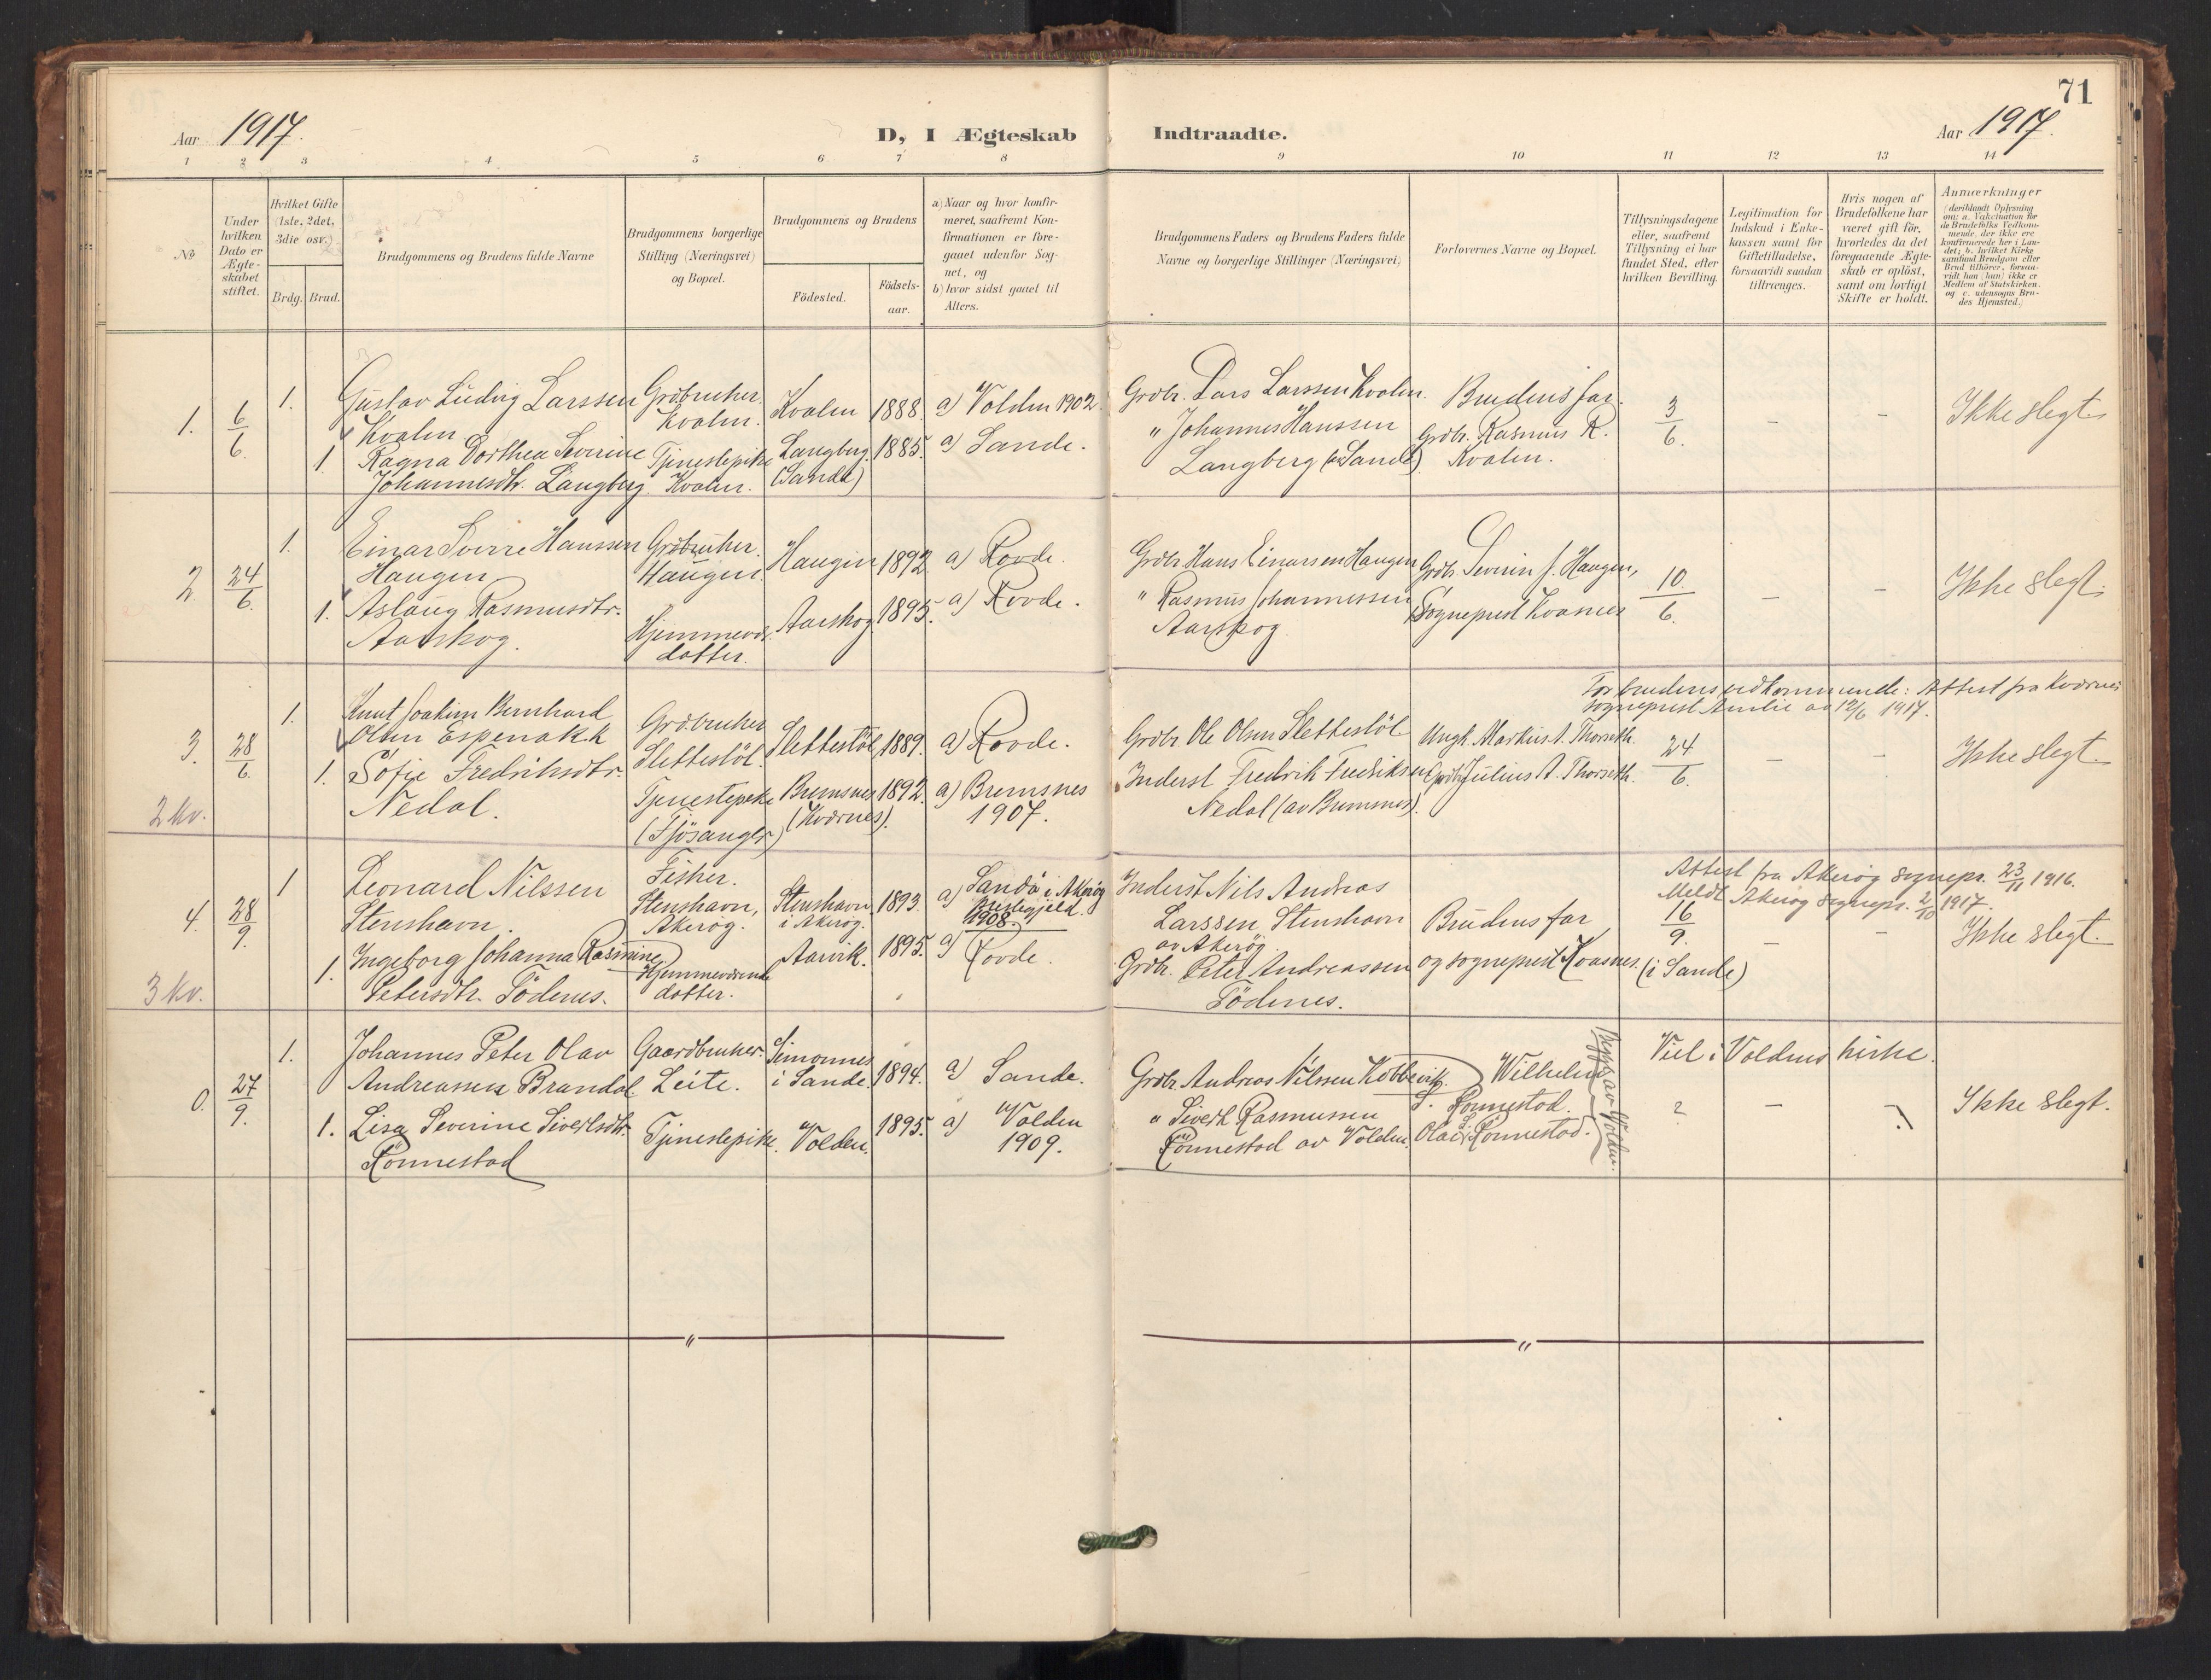 71
Aar 1917.
D, I Ægteskab Indtraadte.
Aar 1917.
1 2 3 4 5 6 7 8 9 10 11 12 13 14
No
Under
hvilken
Dato er
Ægte-
skabet
stiftet.
Hvilket Gifte
(1ste, 2det,
3die osv.)
Brdg. Brud.
Brudgommens og Brudens fulde Navne
Brudgommens borgerlige
Stilling (Næringsvei)
og Bopæl.
Brudgommens og Brudens
Födested.
Födsels-
aar.
a) Naar og hvor konfir-
meret, saafremt Kon-
firmationen er fore-
gaaet udenfor Sog-
net, og
b) hvor sidst gaaet til
Alters.
Brudgommens Faders og Brudens Faders fulde
Navne og borgerlige Stillinger (Næringsvei)
Forlovernes Navne og Bopæl.
Tillysningsdagene
eller, saafremt
Tillysning ei har
fundet Sted, efter
hvilken Bevilling.
Legitimation for
Indskud i Enke-
kassen samt for
Giftetilladelse,
forsaavidt saadan
tiltrænges.
Hvis nogen af
Brudefolkene har
været gift för,
hvorledes da det
foregaaende Ægte-
skab er oplöst,
samt om lovligt
Skifte er holdt.
Anmærkninger
(deriblandt Oplysning
om: a. Vakcination for
de Brudefolks Vedkom-
mende, der ikke ere
konfirmerede her i Lan-
det; b. hvilket Kirke
samfund Brudgom eller
Brud tilhörer, forsaa-
vidt han (hun) ikke er
Medlem af Statskirken.
og c. udensogns Bru-
des Hjemsted.)
1. 6/6 1.
Gustav Ludvig Larssen
Kvalen
Grdbruker.
Kvalen.
Kvalen 1888. a) Volden 1902.
1. Ragna Dorthea Severine
Johannesdtr. Langberg
Tjenestepike
Kvalen.
Langberg
(Sande)
1885. a) Sande.
Grdbr. Lars Larssen Kvalen.
" Johannes Hanssen
Langberg (av Sande)
Brudens far.
Grdbr. Rasmus R.
Kvalen.
3/6. - - Ikke slegt.
2 24/6. 1.
Einar Sverre Hanssen
Haugen
Grdbruker.
Haugen.
Haugen 1892 a) Rovde.
1. Aslaug Rasmusdtr.
Aarskog.
Hjemmevær.
dotter.
Aarskog. 1895. a) Rovde.
Grdbr. Hans Einarsen Haugen
" Rasmus Johannessen
Aarskog
Grdbr. Severin J. Haugen,
Sogneprest Kvasnes
10/6. - - Ikke slegt.
3. 28/6. 1.
Knut Joakim Bernhard
Olsen Espenakk
Grdbruker
Slettestöl.
Slettestöl 1889. a) Rovde.
1. Sofie Fredriksdtr.
Nedal.
Tjenestepike
(Fjösanger)
Bremsnes
(Kvernes).
1892. a) Bremsnes
1907.
2 kv.
Grdbr. Ole Olsen Slettestöl
Inderst Fredrik Fredriksen
Nedal (av Bremsnes).
Ungk. Markus A. Thorseth.
Grdbr. Julius A. Thorseth.
For brudens vedkommende: Attest fra Kvernes
sogneprest Amlie av 12/6 1917.
24/6. - - Ikke slegt.
4. 28/9. 1
Leonard Nilssen
Stenshavn.
Fisker.
Stenshavn,
Akeröy.
Stenshavn
i Akeröy.
1893. a) Sandö i Akeröy
Prestegjeld.
1908.
1. Ingeborg Johanna Rasmine
Petersdtr. Tödenes.
Hjemmeværende
dotter.
Aarvik. 1895. a) Rovde.
3 kv.
Inderst Nils Andreas
Larssen Stenshavn
av Akeröy.
Grdbr. Peter Andreassen
Tödenes.
Brudens far
og sogneprest Kvasnes. (i Sande)
Attest fra Akeröy sognepr. 23/11 1916.
Meldt Akeröy sognepr. 2/10 1917.
16/9. - - Ikke slegt.
0. 27/9. 1.
Johannes Peter Olav
Andreassen Brandal.
Gaardbruker.
Leite.
Simonnes
i Sande.
1894. a) Sande.
1. Lisa Severine Sivertsdtr.
Rönnestad
Tjenestepike. Volden. 1895. a) Volden
1909.
Grdbr. Andreas Nilssen Kobbevik.
" Sivert Rasmussen
Rönnestad av Volden.
Wilhelm
S. Rönnestad.
Olai S. Rönnestad.
Begge av Volden.
Viet i Voldens kirke.
? - - Ikke slegt.